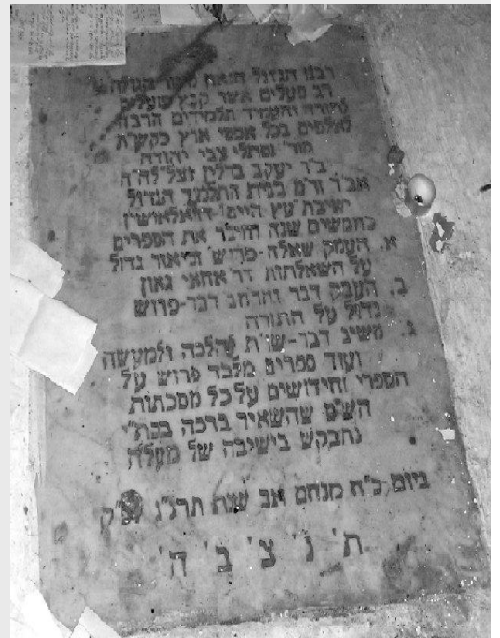 רבנו הגדול הגאון
רב פעלים אשר קבץ פועלים
לתורה והעמיד תלמידים הרבה
לאלפים בכל אפסי ארץ כקש״ת
מור׳ נפתלי צבי יהודה
ב״ר יעקב ברלין זצל״ה״ה
אב״ד ור״מ בבית התלמוד הגדול
ישיבת עץ חיים
כחמשים שנה חיבר את הספרים
א. העמק שאלה-פרוש וביאור גדול
על השאלתות דר׳ אחאי גאון
ב. העמק דבר והרחב דבר-פרוש
גדול על התורה
ג. משיב דבר-שו״ת להלכה ולמעשה
ועוד ספרים מלבד פרוש על
הספרי וחידושים על כל מסכתות
הש״ס שהשאיר ברכה בכת״י
נתבקש בישיבה של מעלה
ביום כ״ח מנחם אב שנת תרנ״ג לפ״ק
ת׳ נ׳ צ׳ ב׳ ה׳